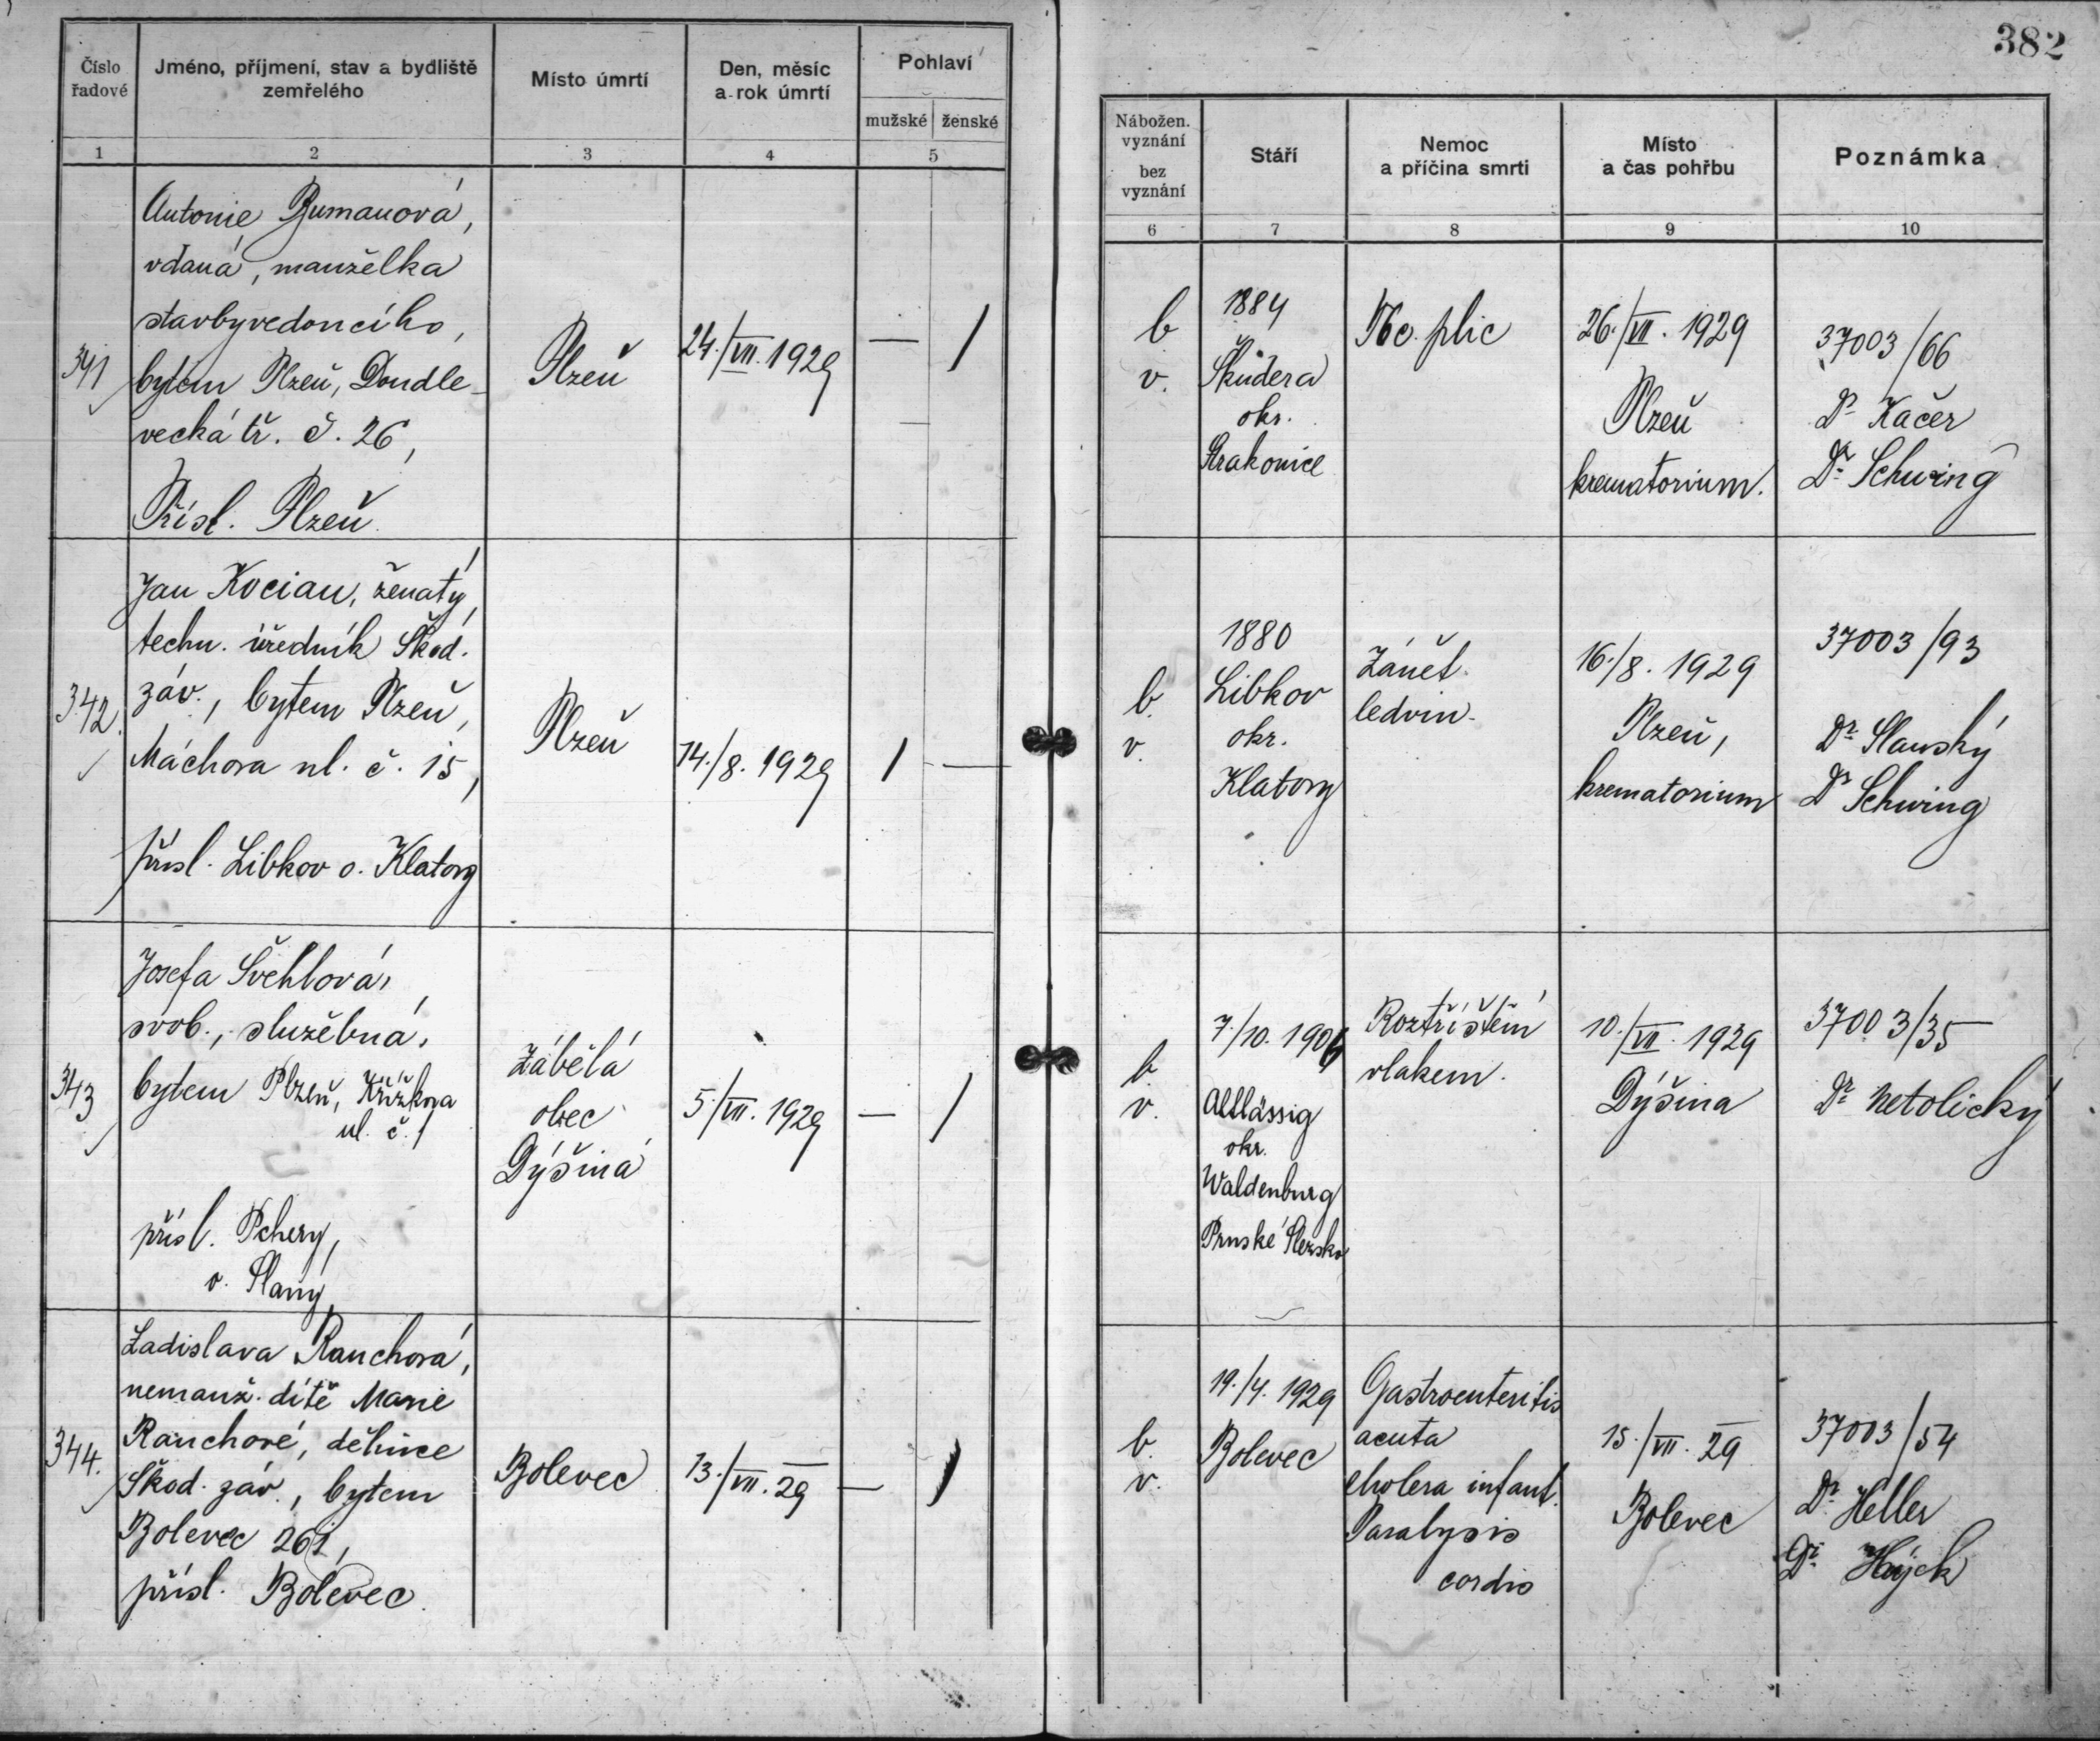 382
Číslo řadové
Jméno, příjmení, stav a bydliště zemřelého
Místo úmrtí
Den, měsíc a rok úmrtí
Pohlaví
mužské ženské
1 2 3 4 5
Nábožen. vyznání
bez vyznání
Stáří
Nemoc a příčina smrti
Místo a čas pohřbu
Poznámka
6 7 8 9 10
341
Antonie
vdaná, manželka
stavbyvedoucího,
bytem Plzeň, Doudle-
vecká tř. č. 26,
Přísl. Plzeň
Plzeň
24./VII. 1929
— /
b
v.
1884
Škudera
okr.
Strakonice
Tbc. plic
26./VII. 1929
Plzeň
krematorium.
37003/66
Dr Kačer
Dr Schwing
342.
Jan Kocian, ženatý,
techn. úředník Škod.
záv., bytem Plzeň,
Máchova ul. č. 15,
přísl. Libkov o. Klatovy
Plzeň
14./8. 1929
/ —
b.
v.
1880
Libkov
okr.
Klatovy
Zánět
ledvin.
16./8. 1929
Plzeň,
krematorium
37003/93
Dr Slanský
Dr Schwing
343
Josefa Švehlová,
svob., služebná,
bytem Plzeň, Křižkova
ul. č. 1
přísl. Pchery,
o. Slaný
Zábělá
obec
Dýšina
5/VII. 1929
— /
b.
v.
7./10. 1906
Altlässig
okr.
Waldenburg
Pruské Slezsko
Roztříštění
vlakem.
10./VII. 1929
Dýšina
37003/35
Dr Netolický
344.
Ladislava Rauchová,
nemanž. dítě Marie
Rauchové, dělnice
Škod. záv., bytem
Bolevec 261,
přísl. Bolevec.
Bolevec
13./VII. 29
— /
b.
v.
19./4. 1929
Bolevec
Gastroenteritis
acuta
cholera infant.
Paralysis
cordis
15./VII. 29
Bolevec
37003/54
Dr Heller
Dr